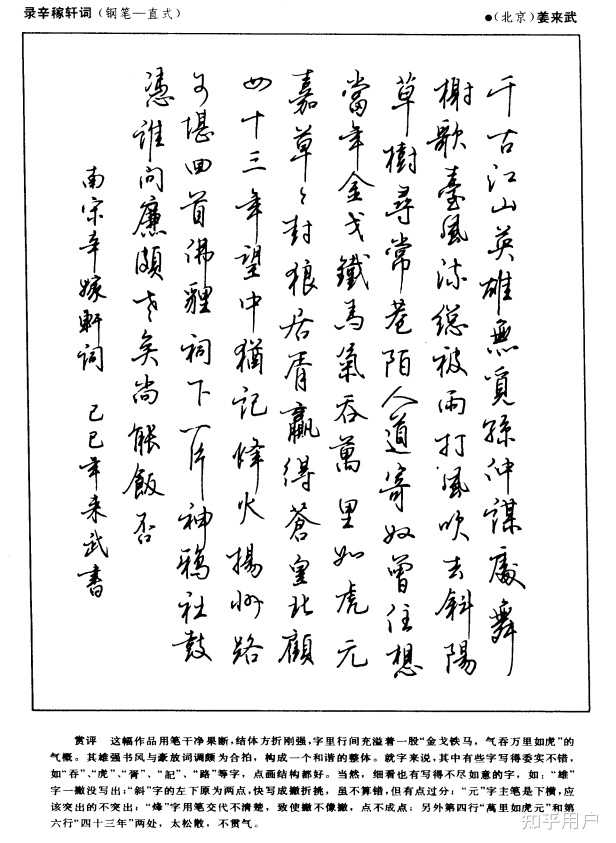 录辛稼轩词（钢笔—直式）
●（北京）姜来武
千古江山英雄無覓孫仲謀處舞
榭歌臺風流總被雨打風吹去斜陽
草樹尋常巷陌人道寄奴曾住想
當年金戈鐵馬氣吞萬里如虎元
嘉草〻封狼居胥贏得蒼皇北顧
四十三年望中猶記烽火揚州路
可堪回首佛貍祠下一片神鴉社鼓
憑誰問廉頗老矣尚能飯否
南宋辛稼軒詞 己巳年来武書
赏评 这幅作品用笔干净果断，结体方折刚强，字里行间充溢着一股“金戈铁马，气吞万里如虎”的
气概。其雄强书风与豪放词调颇为合拍，构成一个和谐的整体。就字来说，其中有些字写得委实不错，
如“吞”、“虎”、“胥”、“記”、“路”等字，点画结构都好。当然，细看也有写得不尽如意的字，如：“雄”
字一撇没写出；“斜”字的左下原为两点，快写成撇折挑，虽不算错，但有点过分；“元”字主笔是下横，应
该突出的不突出；“烽”字用笔交代不清楚，致使撇不像撇，点不成点；另外第四行“萬里如虎元”和第
六行“四十三年”两处，太松散，不贯气。
知乎用户